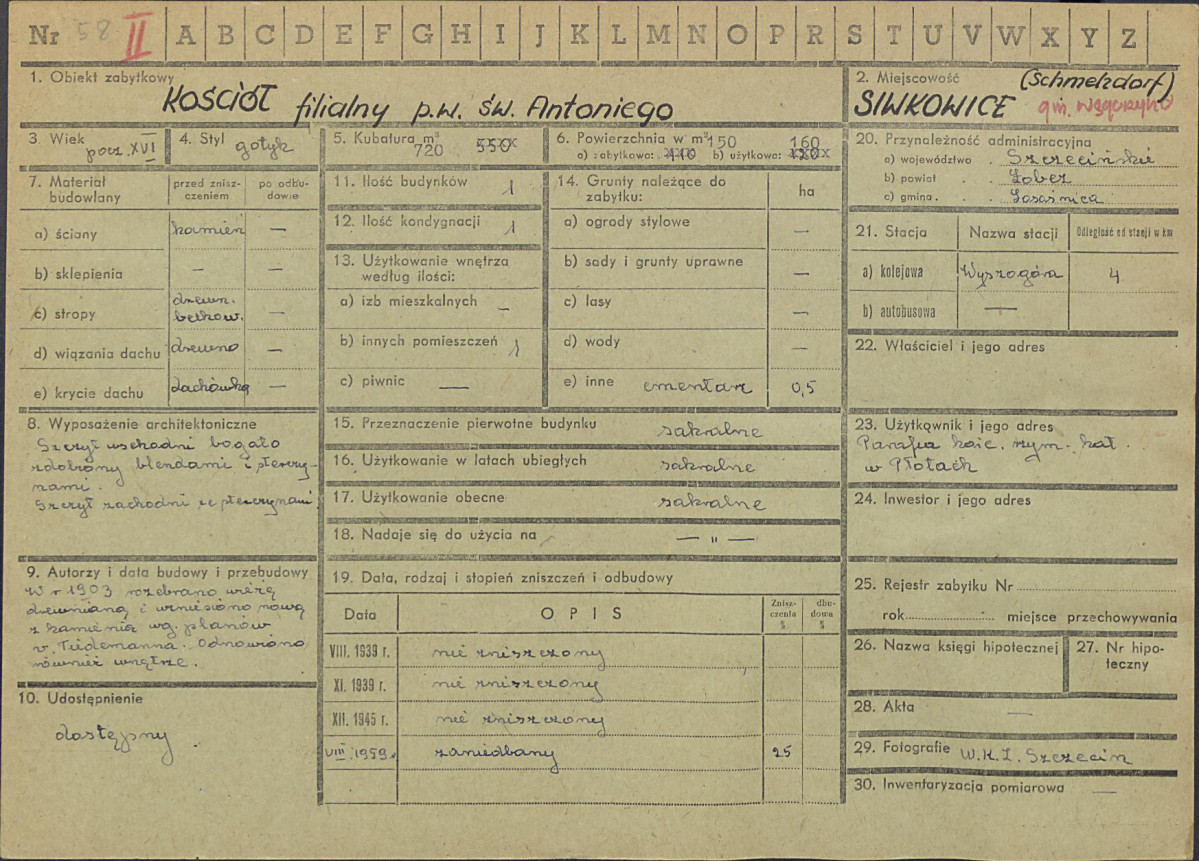 Nr 58 II A B C D E F G H I J K L M N O P R S T U V W X Y Z
1. Obiekt zabytkowy
KOŚCIÓŁ filialny p.w. św. Antoniego
2. Miejscowość (Schmelzdorf)
SIWKOWICE gm. Węgorzyno
3. Wiek
pocz. XVI
4. Styl
gotyk
5. Kubatura m³
720 550
6. Powierzchnia w m² 150 160
a) zabytkowa: 110 b) użytkowa: 120
7. Materiał budowlany
przed zniszczeniem
po odbudowie
a) ściany kamień —
b) sklepienia — —
c) stropy drewn. belkow. —
d) wiązania dachu drewno —
e) krycie dachu dachówka —
8. Wyposażenie architektoniczne
Szczyt wschodni bogato
zdobiony blendami i sterczy-
nami.
Szczyt zachodni ze sterczynami.
9. Autorzy i data budowy i przebudowy
W r 1903 rozebrano wieżę
drewnianą i wzniesiono nową
z kamienia wg. planów
v. Tiedemanna. Odnowiono
również wnętrze.
10. Udostępnienie
dostępny
11. Ilość budynków 1
12. Ilość kondygnacji 1
13. Użytkowanie wnętrza
według ilości:
a) izb mieszkalnych —
b) innych pomieszczeń 1
c) piwnic —
14. Grunty należące do
zabytku: ha
a) ogrody stylowe —
b) sady i grunty uprawne —
c) lasy —
d) wody —
e) inne cmentarz 0,5
15. Przeznaczenie pierwotne budynku sakralne
16. Użytkowanie w latach ubiegłych sakralne
17. Użytkowanie obecne sakralne
18. Nadaje się do użycia na — " —
19. Data, rodzaj i stopień zniszczeń i odbudowy
Data OPIS Znisz-
czenia
% dbu-
dowa
%
VIII. 1939 r. nie zniszczony
XI. 1939 r. nie zniszczony
XII. 1945 r. nie zniszczony
VIII. 1959. zaniedbany 25
20. Przynależność administracyjna
a) województwo . Szczecińskie
b) powiat . . Łobez
c) gmina . . Łosośnica
21. Stacja Nazwa stacji Odległość od stacji w km
a) kolejowa Wyszogóra 4
b) autobusowa —
22. Właściciel i jego adres
23. Użytkownik i jego adres
Parafia kośc. rzym. kat.
w Płotach
24. Inwestor i jego adres
25. Rejestr zabytku Nr
rok miejsce przechowywania
26. Nazwa księgi hipotecznej
27. Nr hipo-
teczny
28. Akta —
29. Fotografie W.K.Z. Szczecin
30. Inwentaryzacja pomiarowa —